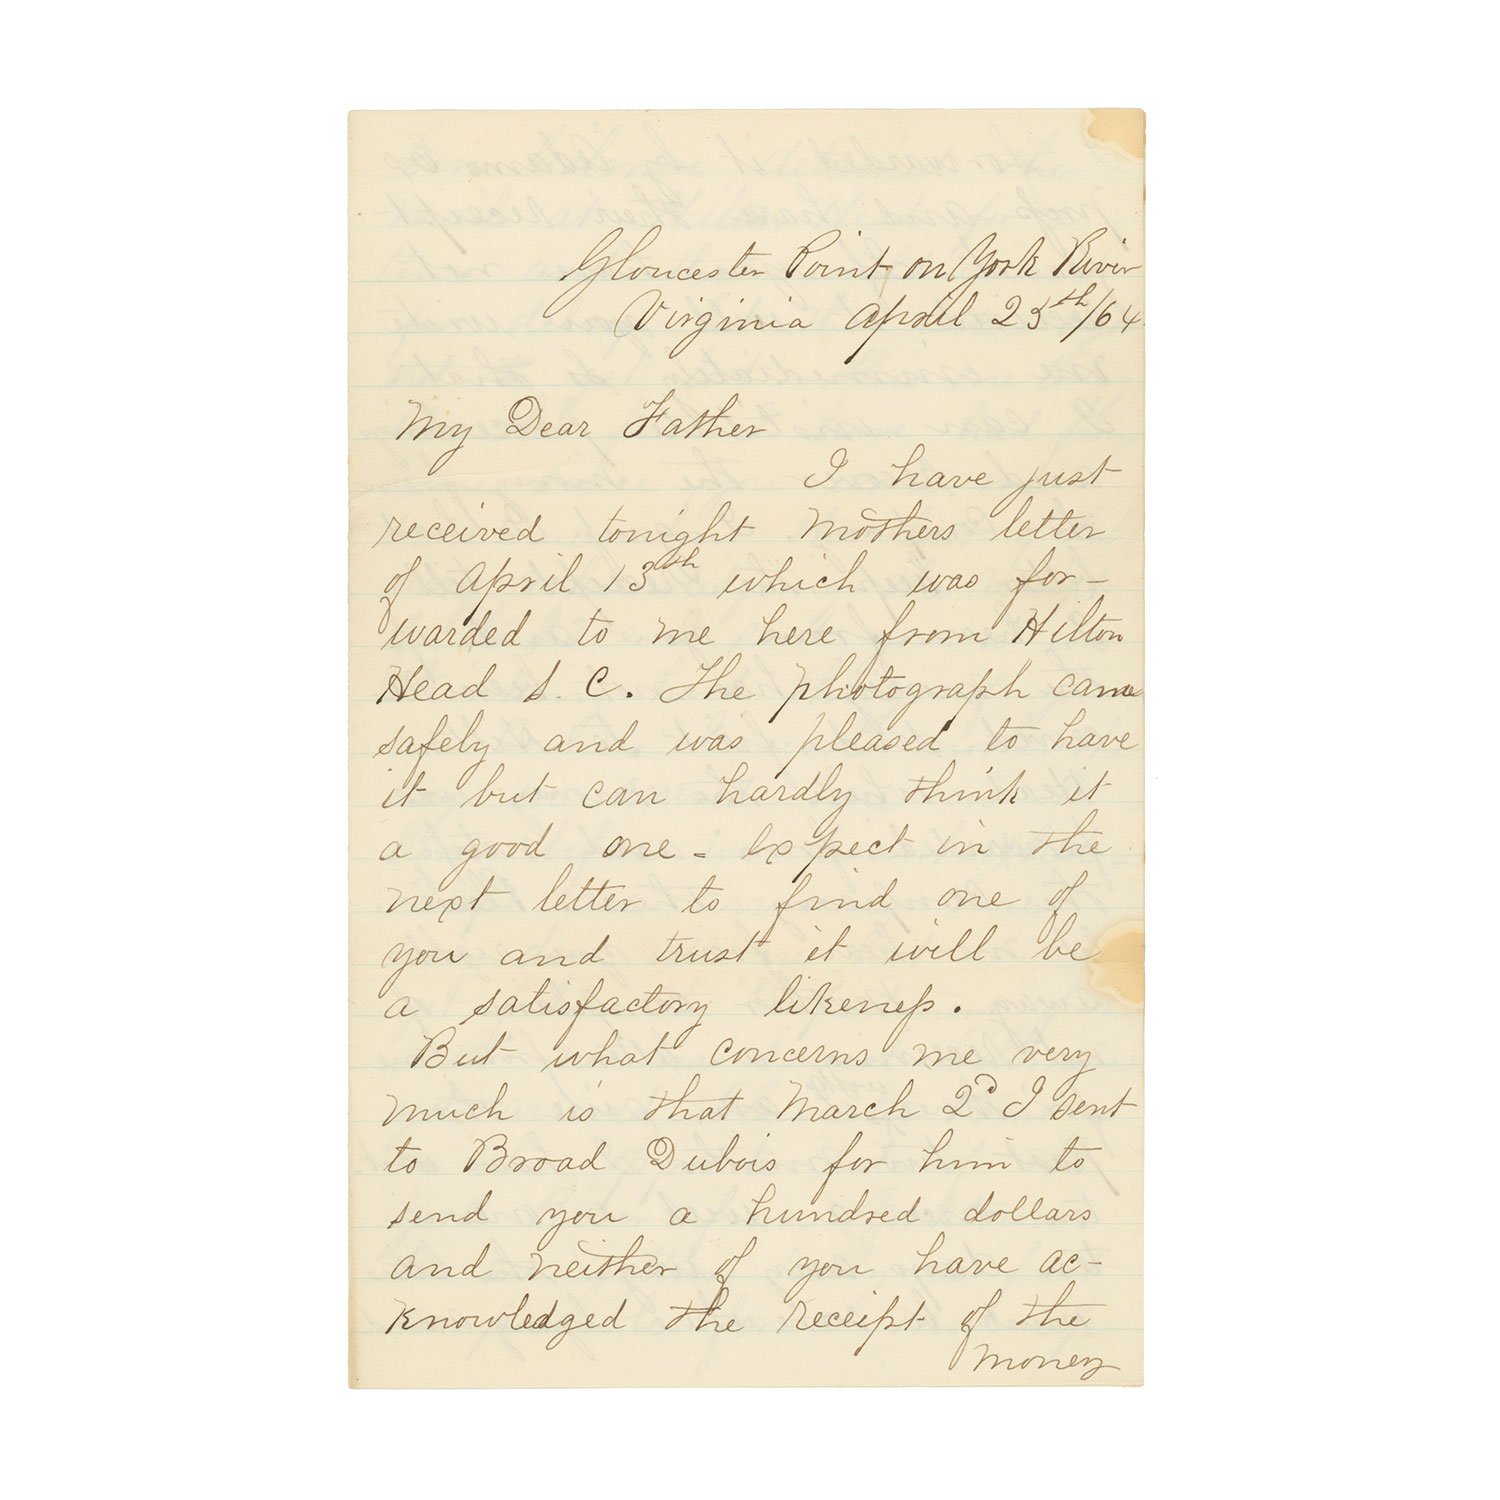 Gloucester Point on York River
Virginia April 25th/64
My Dear Father
I have just
received tonight Mothers letter
of April 13th which was for-
warded to me here from Hilton
Head S. C. The photograph came
safely and was pleased to have
it but can hardly think it
a good one - Expect in the
next letter to find one of
you and trust it will be
a satisfactory likeness.
But what concerns me very
much is that March 2d I sent
to Broad Dubois for him to
send you a hundred dollars
and neither of you have ac-
knowledged the receipt of the
money